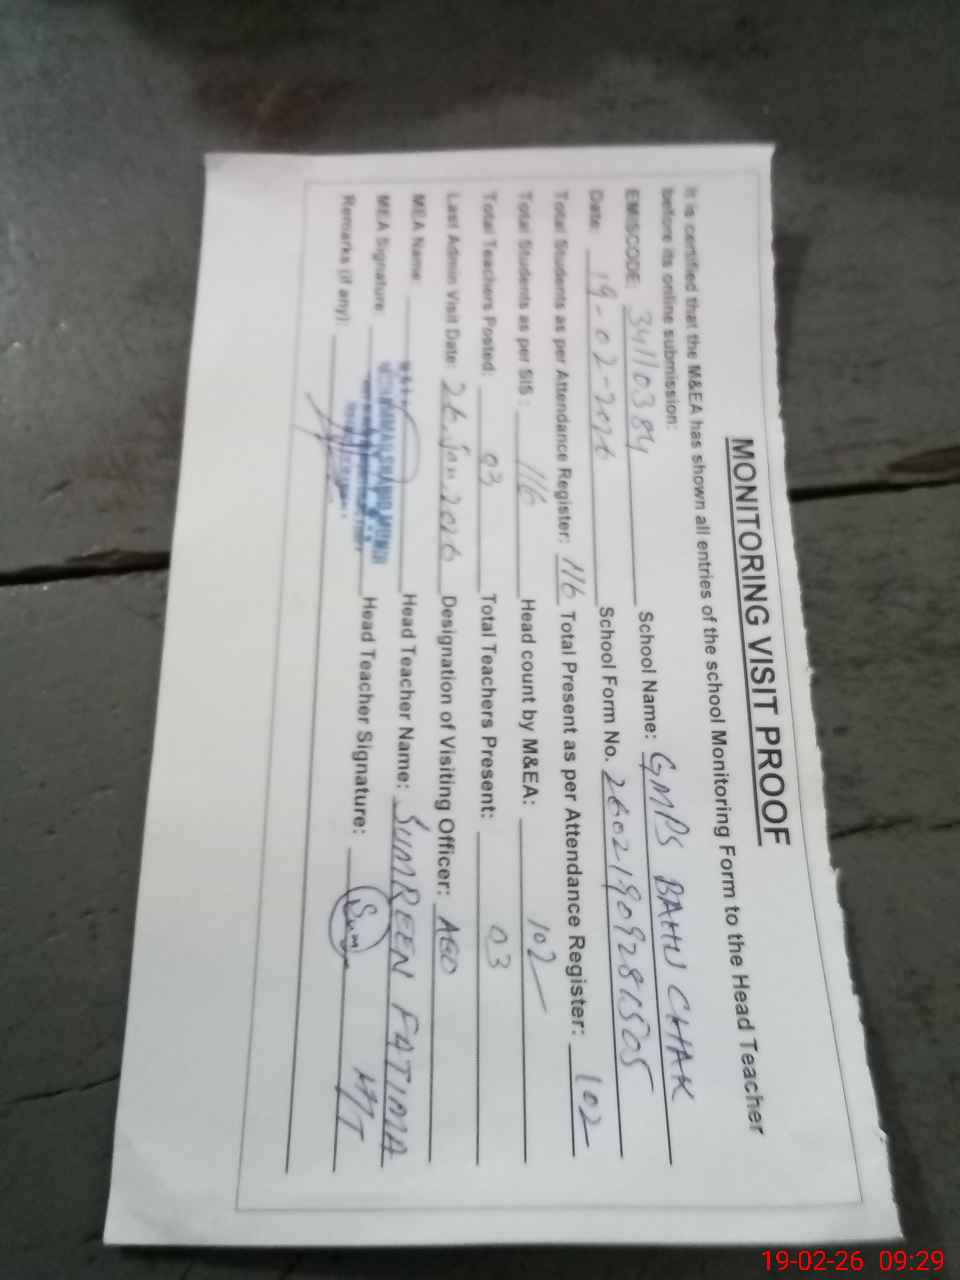 MONITORING VISIT PROOF
It is certified that the M&EA has shown all entries of the school Monitoring Form to the Head Teacher
before its online submission:
EMISCODE: 34110384 School Name: GMPS BAHU CHAK
Date: 19-02-2026 School Form No. 26021909281505
Total Students as per Attendance Register: 116 Total Present as per Attendance Register: 102
Total Students as per SIS: 116 Head count by M&EA: 102
Total Teachers Posted: 03 Total Teachers Present: 03
Last Admin Visit Date: 26.Jan.2026 Designation of Visiting Officer: AEO
MEA Name: Head Teacher Name: SUMREEN FATIMA
MEA Signature: Head Teacher Signature: Sum H/T
Remarks (if any):
19-02-26 09:29